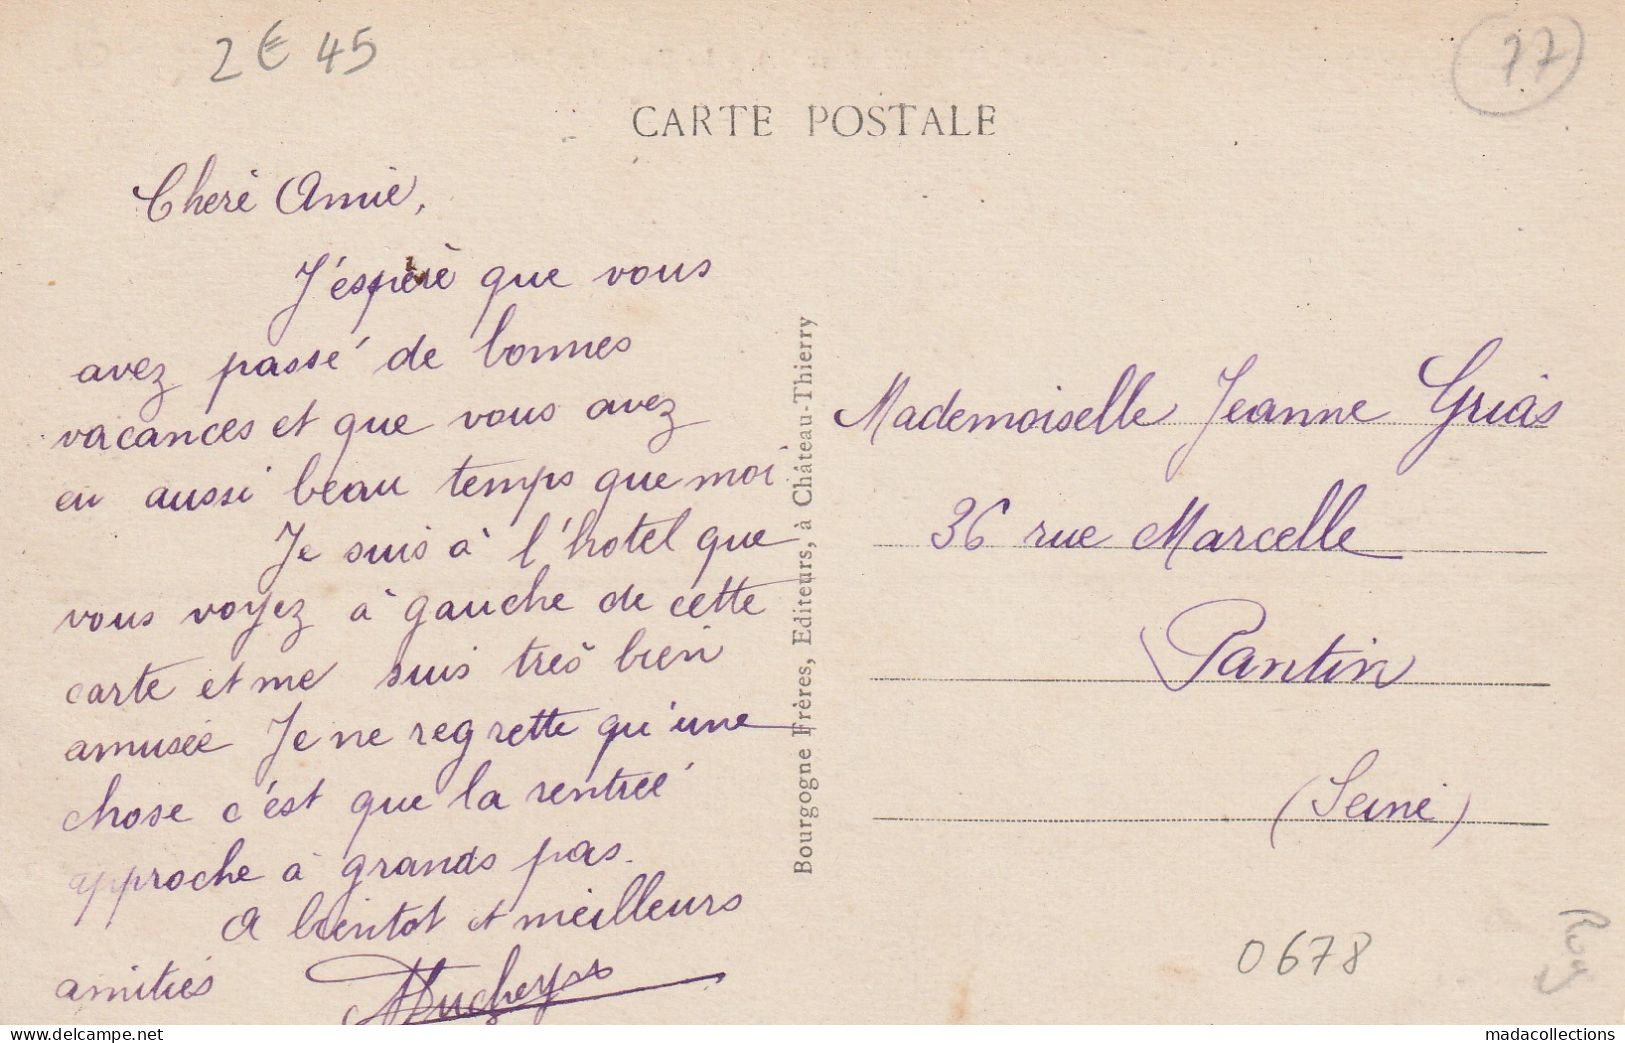 2 € 45
77
CARTE POSTALE
Cheré Amie,
J'espère que vous
avez passé de bonnes
vacances et que vous avez
eu aussi beau temps que moi
Je suis à l'hotel que
vous voyez à gauche de cette
carte et me suis très bien
amusée Je ne regrette qu'une
chose c'est que la rentrée
approche à grands pas.
A bientot et meilleurs
amitiés
Bourgogne Frères, Editeurs, à Château-Thierry
Mademoiselle Jeanne Grias
36 rue Marcelle
Pantin
(Seine)
0678
www.delcampe.net
madacollections